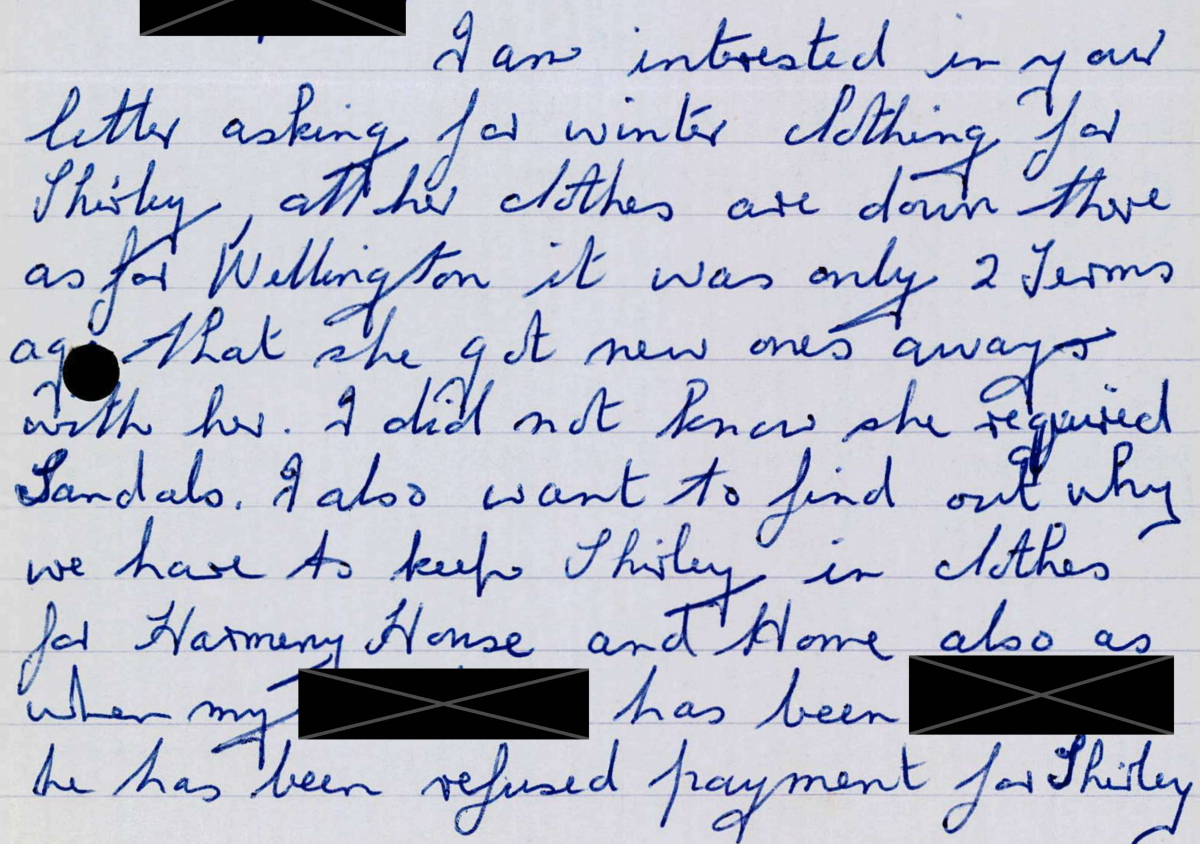 I am intrested in your
letter asking for winter clothing for
Shirley, all her clothes are down there
as for Wellington it was only 2 Terms
ago that she got new ones aways
with her. I did not know she required
Sandals. I also want to find out why
we have to keep Shirley in clothes
for Harmeny House and Home also as
when my has been
he has been refused payment for Shirley